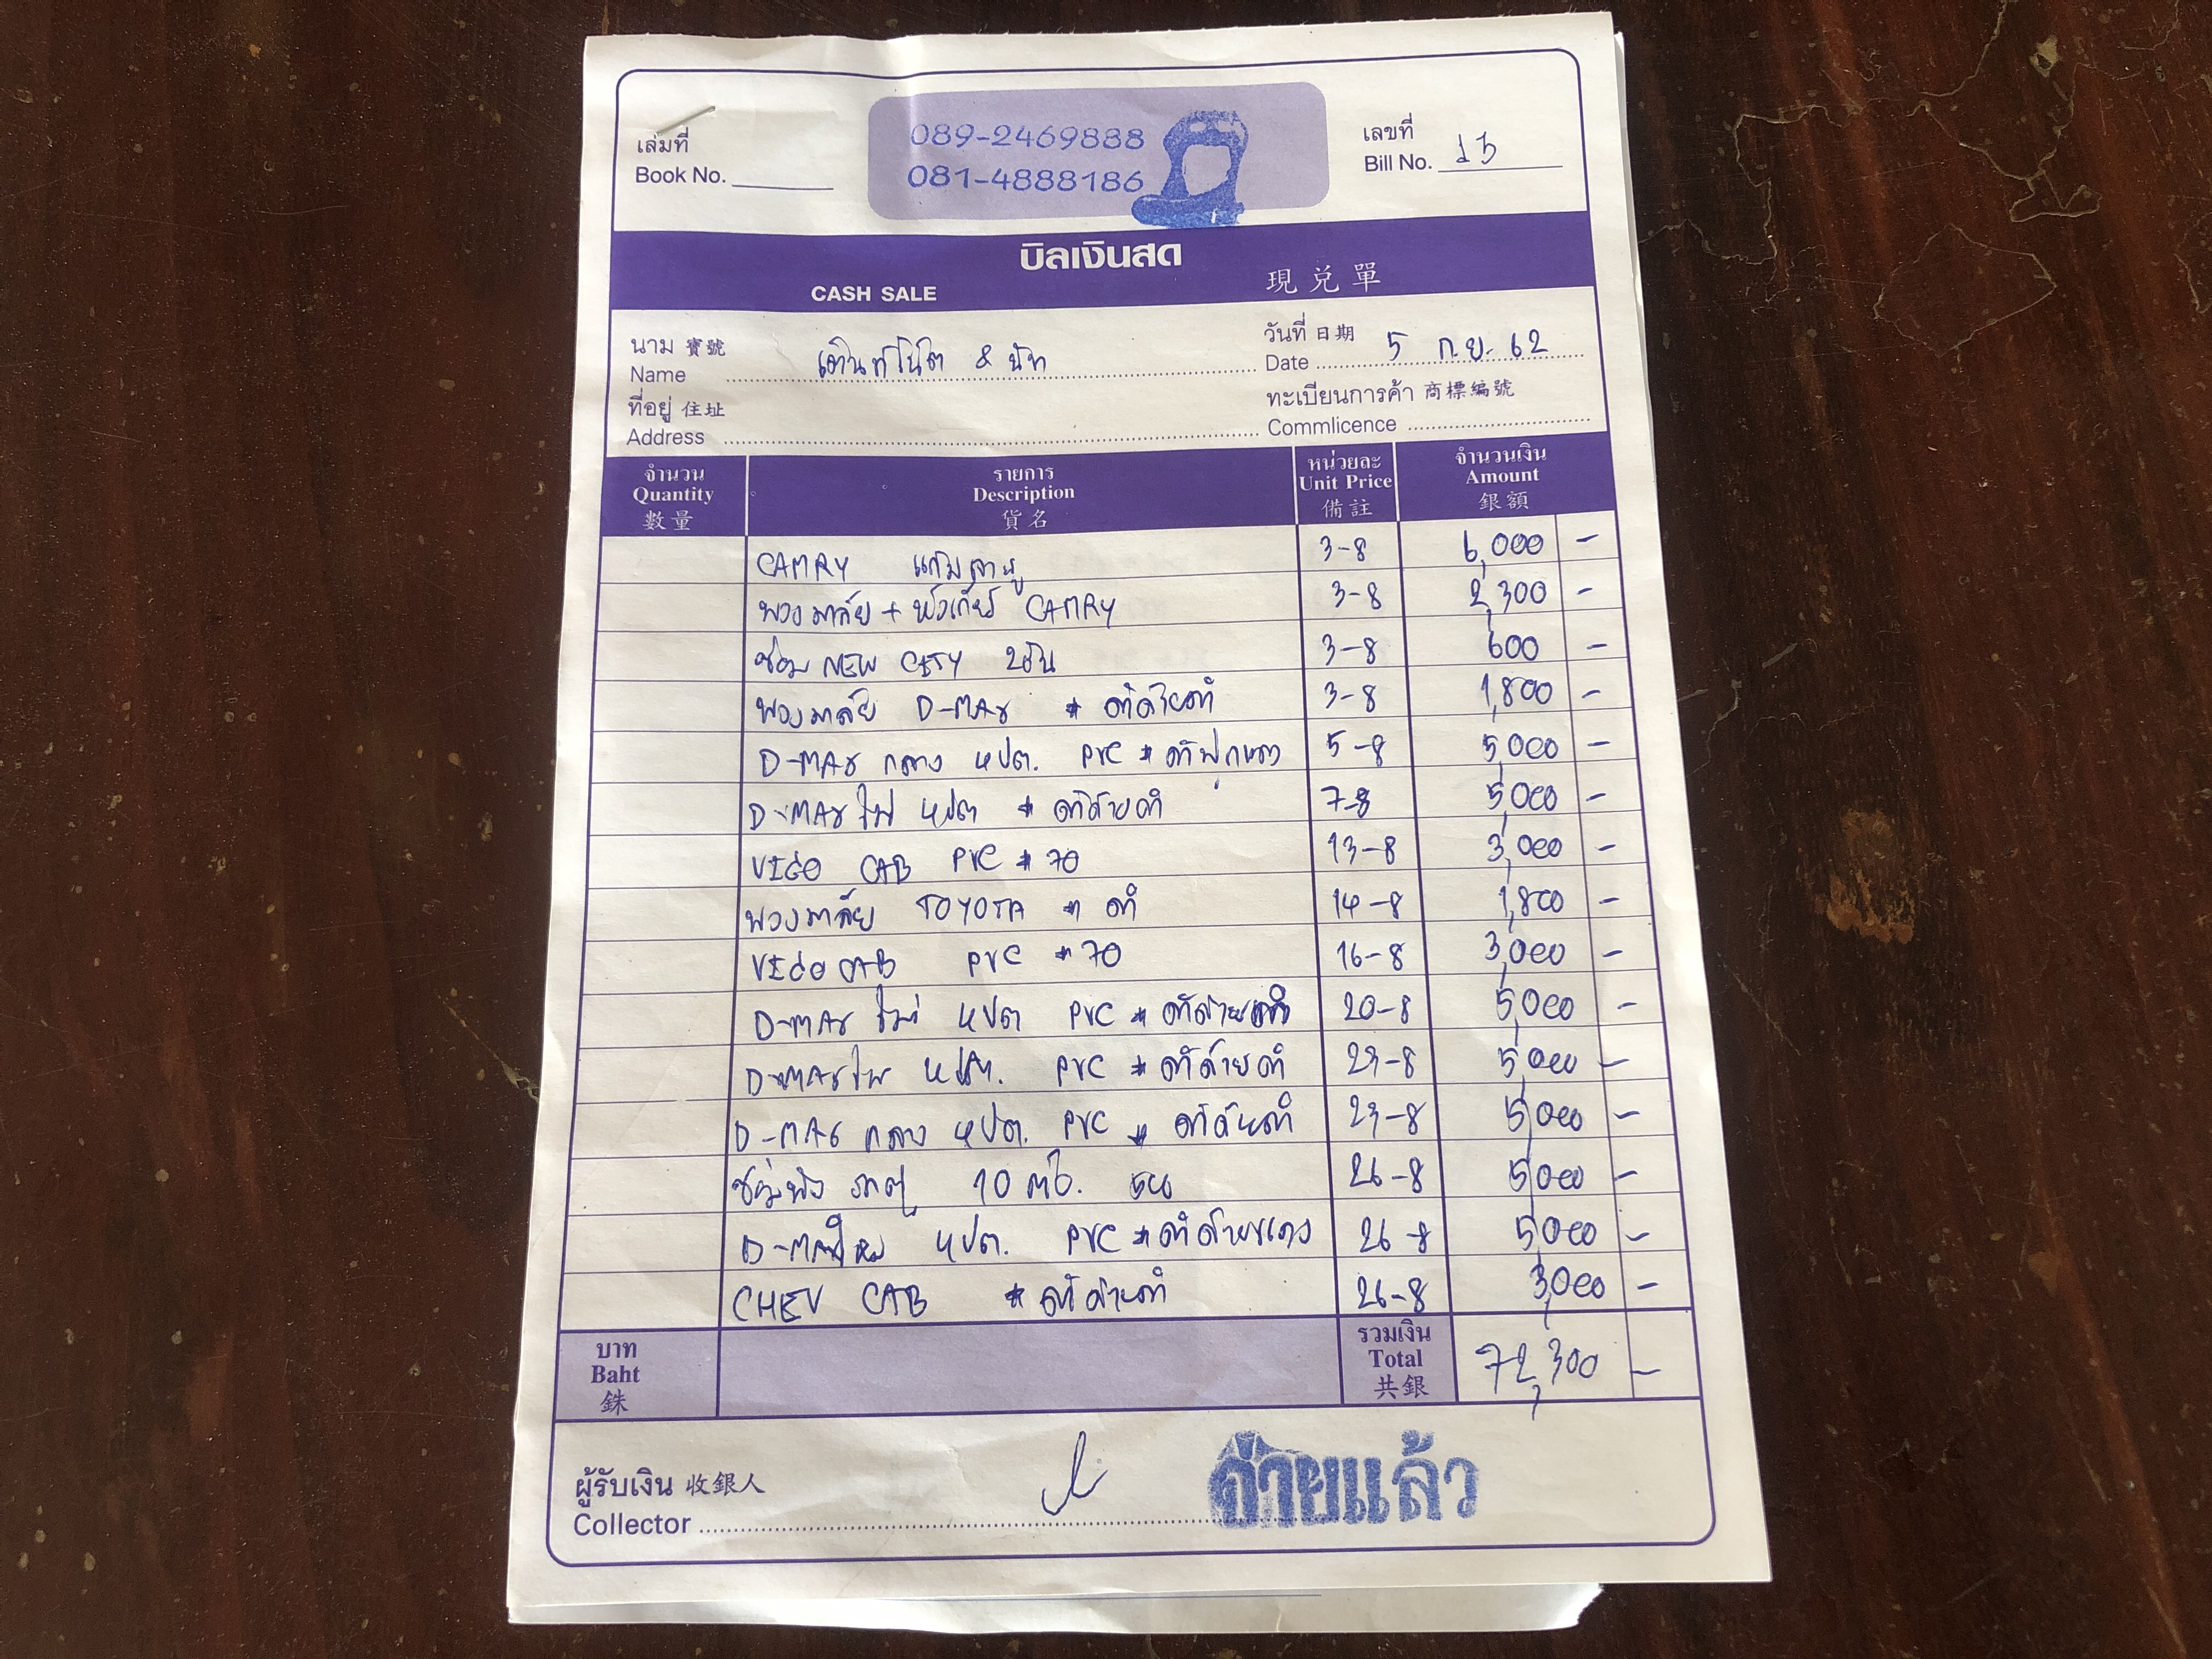 เล่มที่
Book No.
089-2469888
081-4888186
เลขที่
Bill No. 13
บิลเงินสด
CASH SALE 現兌單
นาม 寶號
Name เต็นท์โน๊ต & นัท
วันที่ 日期
Date 5 ก.ย. 62
ที่อยู่ 住址
Address
ทะเบียนการค้า 商標編號
Commlicence
จำนวน รายการ หน่วยละ จำนวนเงิน
Quantity Description Unit Price Amount
數量 貨名 備註 銀額
CAMRY 3-8 6,000 -
พวงมาลัย + หัวเกียร์ CAMRY 3-8 2,300 -
ซ่อม NEW CITY 3-8 600 -
พวงมาลัย D-MAX # ดำด้ายดำ 3-8 1,800 -
D-MAX กลาง หปต. PVC # 5-8 5,000 -
D-MAX หปต # ดำด้ายดำ 7-8 5,000 -
VIGO CAB PVC # 70 13-8 3,000 -
พวงมาลัย TOYOTA # ดำ 14-8 1,800 -
VIGO CAB PVC # 70 16-8 3,000 -
D-MAX ใหม่ หปต PVC # 20-8 5,000 -
D-MAX หปต. PVC # ดำด้ายดำ 23-8 5,000 -
D-MAX กลาง หปต. PVC # ดำด้ายดำ 23-8 5,000 -
10 26-8 5,000 -
หปต. PVC # ดำด้ายแดง 26-8 5,000 -
CHEV CAB # ดำด้ายดำ 26-8 3,000 -
บาท รวมเงิน
Baht Total 72,300 -
銖 共銀
ผู้รับเงิน 收銀人
Collector
จ่ายแล้ว